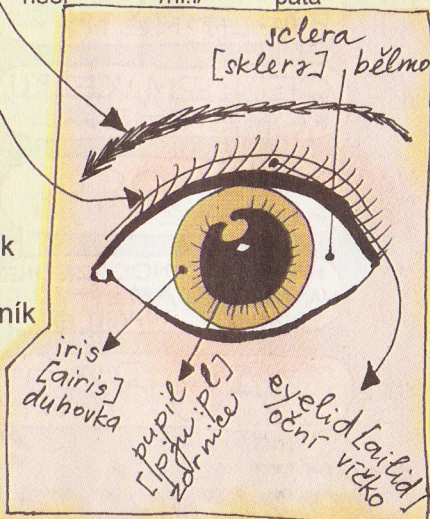 pata
sclera
[sklerə] bělmo
k
ník
iris
[airis]
duhovka
pupil
[pju:pl]
zornice
eyelid [ailid]
oční víčko